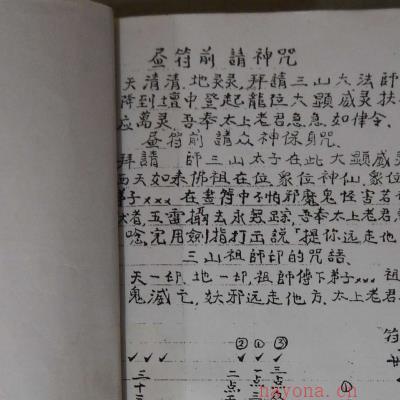 昼符前請神咒
天清清.地灵灵,拜請三山大法師
降到壇中登起龍位大顕威灵扶
应萬灵.吾奉太上老君急急如律令.
昼符前請众神保身咒.
拜請 師三山太子在此大顕威灵
西天如来佛祖在位.衆位神仙.衆位
弟子xxx 在畫符中不怕邪魔鬼怪害若
太者,五雷攝去永無踪.吾奉太上老君
唸,完用劍指打击説「提你远走他
三山祖師卸的咒語.
天一卸.地一卸,祖師傳下弟子xxx
鬼滅亡,妖邪远走他方.太上老君
符
③
② ① ✓
✓ ✓ ✓ ✓ ✓
三十三
二点
一点
三点
①
nayona.cn